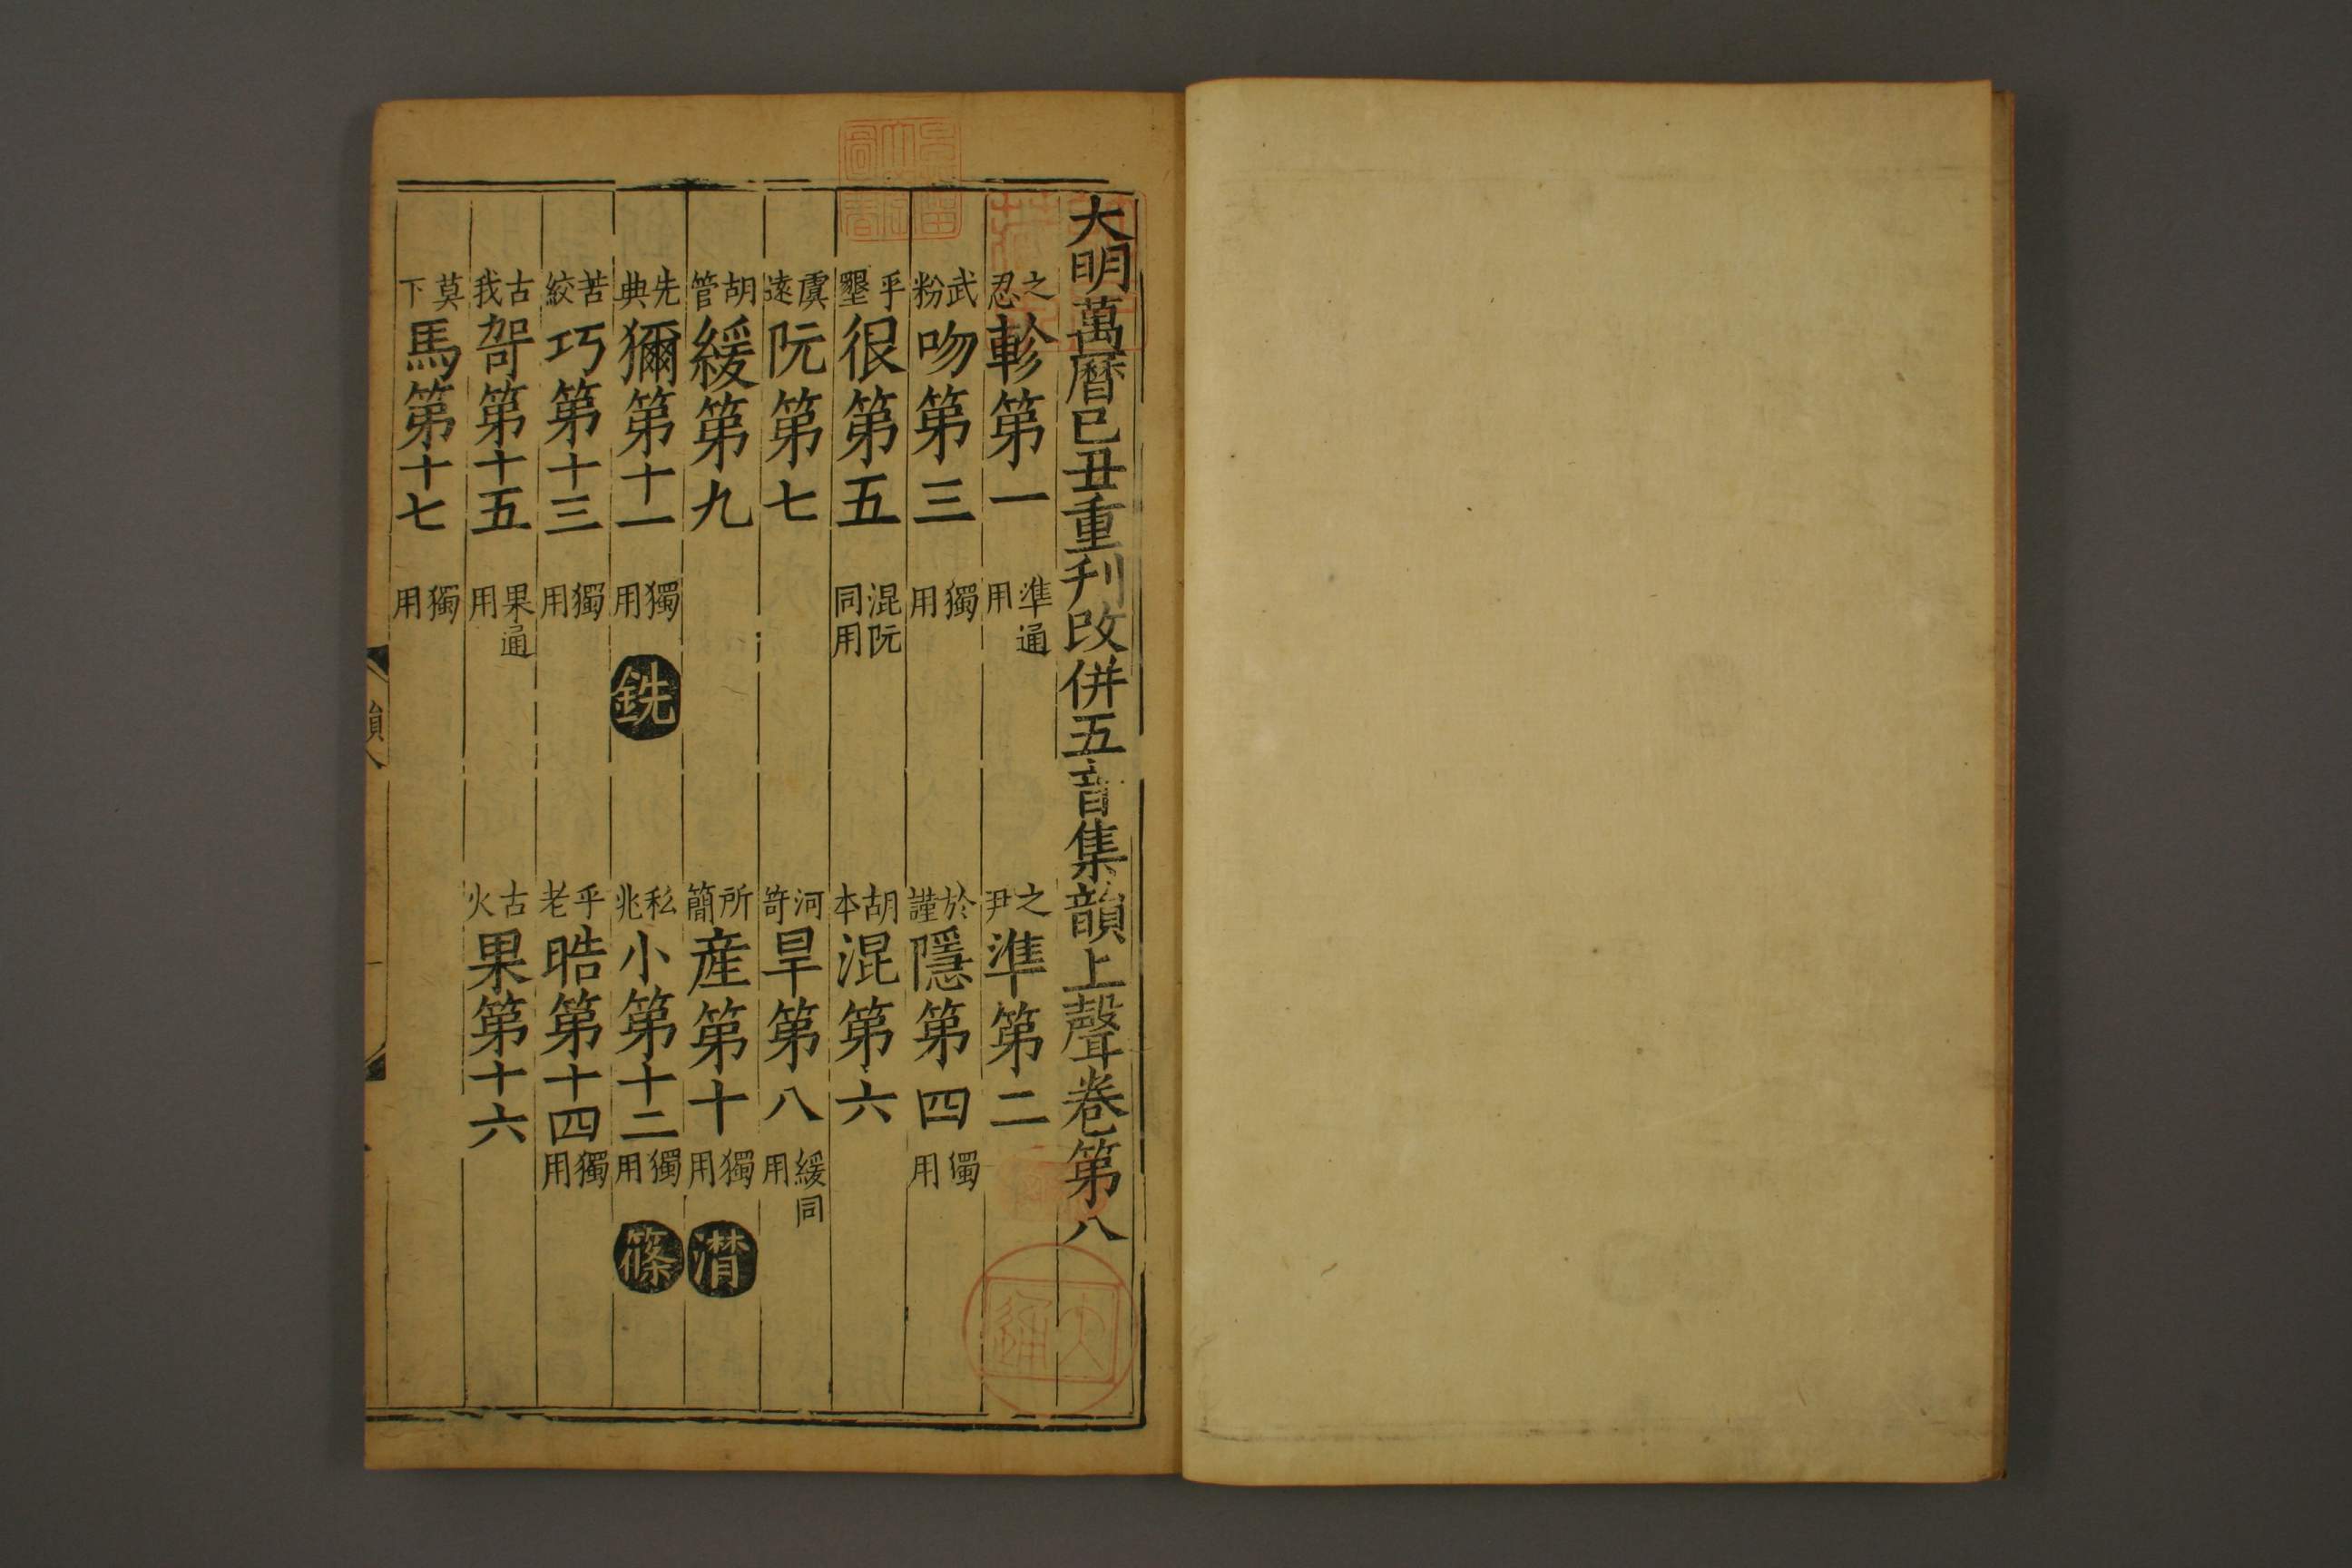 大明萬曆己丑重刊改併五音集韻上聲卷第八
之忍軫第一 準通用 之尹準第二
武粉吻第三 獨用 於謹隱第四 獨用
乎墾很第五 混阮同用 胡本混第六
虞遠阮第七 河笴旱第八 緩同用
胡管緩第九 所簡産第十 獨用 潸
先典獮第十一 獨用 銑 私兆小第十二 獨用 篠
苦絞巧第十三 獨用 乎老晧第十四 獨用
古我哿第十五 果通用 古火果第十六
莫下馬第十七 獨用